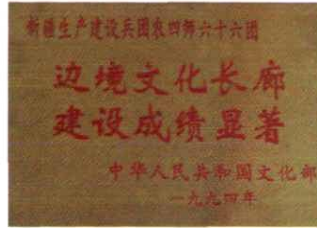 新疆生产建设兵团农四师六十六团
边境文化长廊
建设成绩显著
中华人民共和国文化部
一九九四年